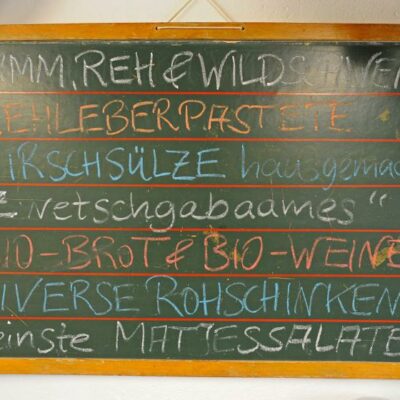 MM, REH & WILDSCHWEI
EHLEBERPASTETE
IRSCHSÜLZE hausgemac
Zwetschgabadmes"
IO-BROT & BIO-WEINE
IVERSE ROHSCHINKEN
einste MATJESSALATE